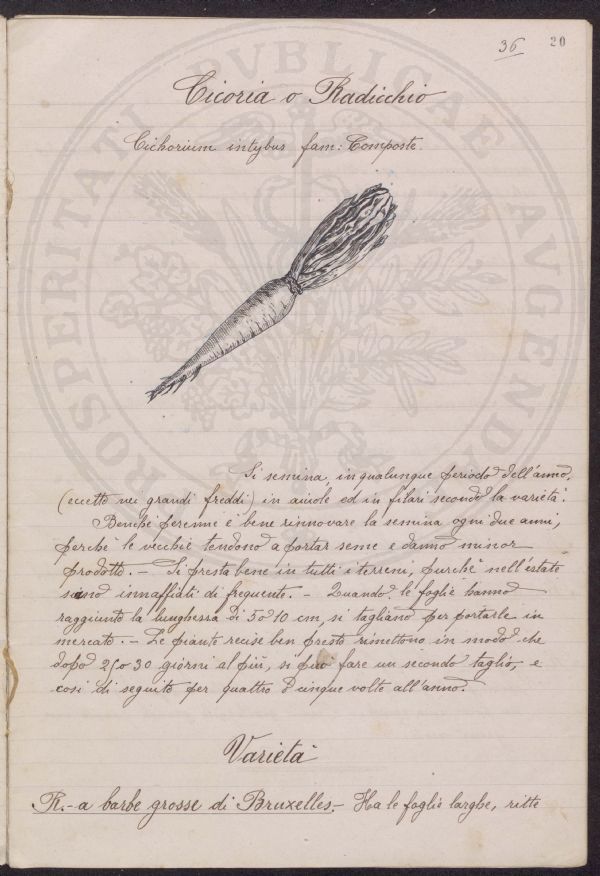 36 20
Cicoria o Radicchio
Cichorium intybus fam: Composte.
Si semina, in qualunque periodo dell'anno,
(eccetto nei grandi freddi) in aiuole ed in filari secondo la varietà.
Benchè perenne è bene rinnovare la semina ogni due anni,
perchè le vecchie tendono a portar seme e danno minor
prodotto. — Si presta bene in tutti i terreni, purchè nell'estate
siano innaffiati di frequente. — Quando le foglie hanno
raggiunto la lunghezza di 5 o 10 cm, si tagliano per portarle in
mercato. — Le piante recise ben presto rimettono in modo che
dopo 25 o 30 giorni al più, si può fare un secondo taglio, e
così di seguito per quattro o cinque volte all'anno.
Varietà
R. - a barbe grosse di Bruxelles. - Ha le foglie larghe, ritte
PROSPERITATI PVBLICAE AVGENDAE